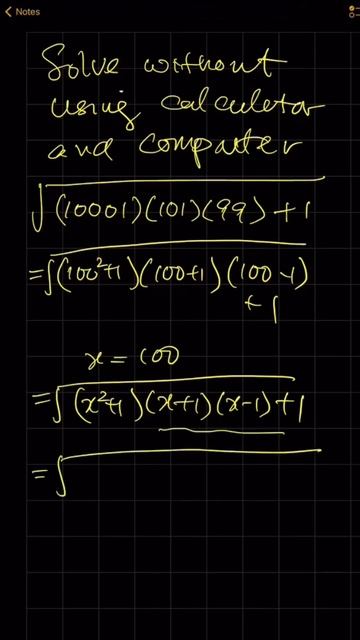 Notes
Solve without
using calculator
and computer
√(10001)(101)(99)+1
=√(100²+1)(100+1)(100-1)
+1
x=100
=√(x²+1)(x+1)(x-1)+1
=√